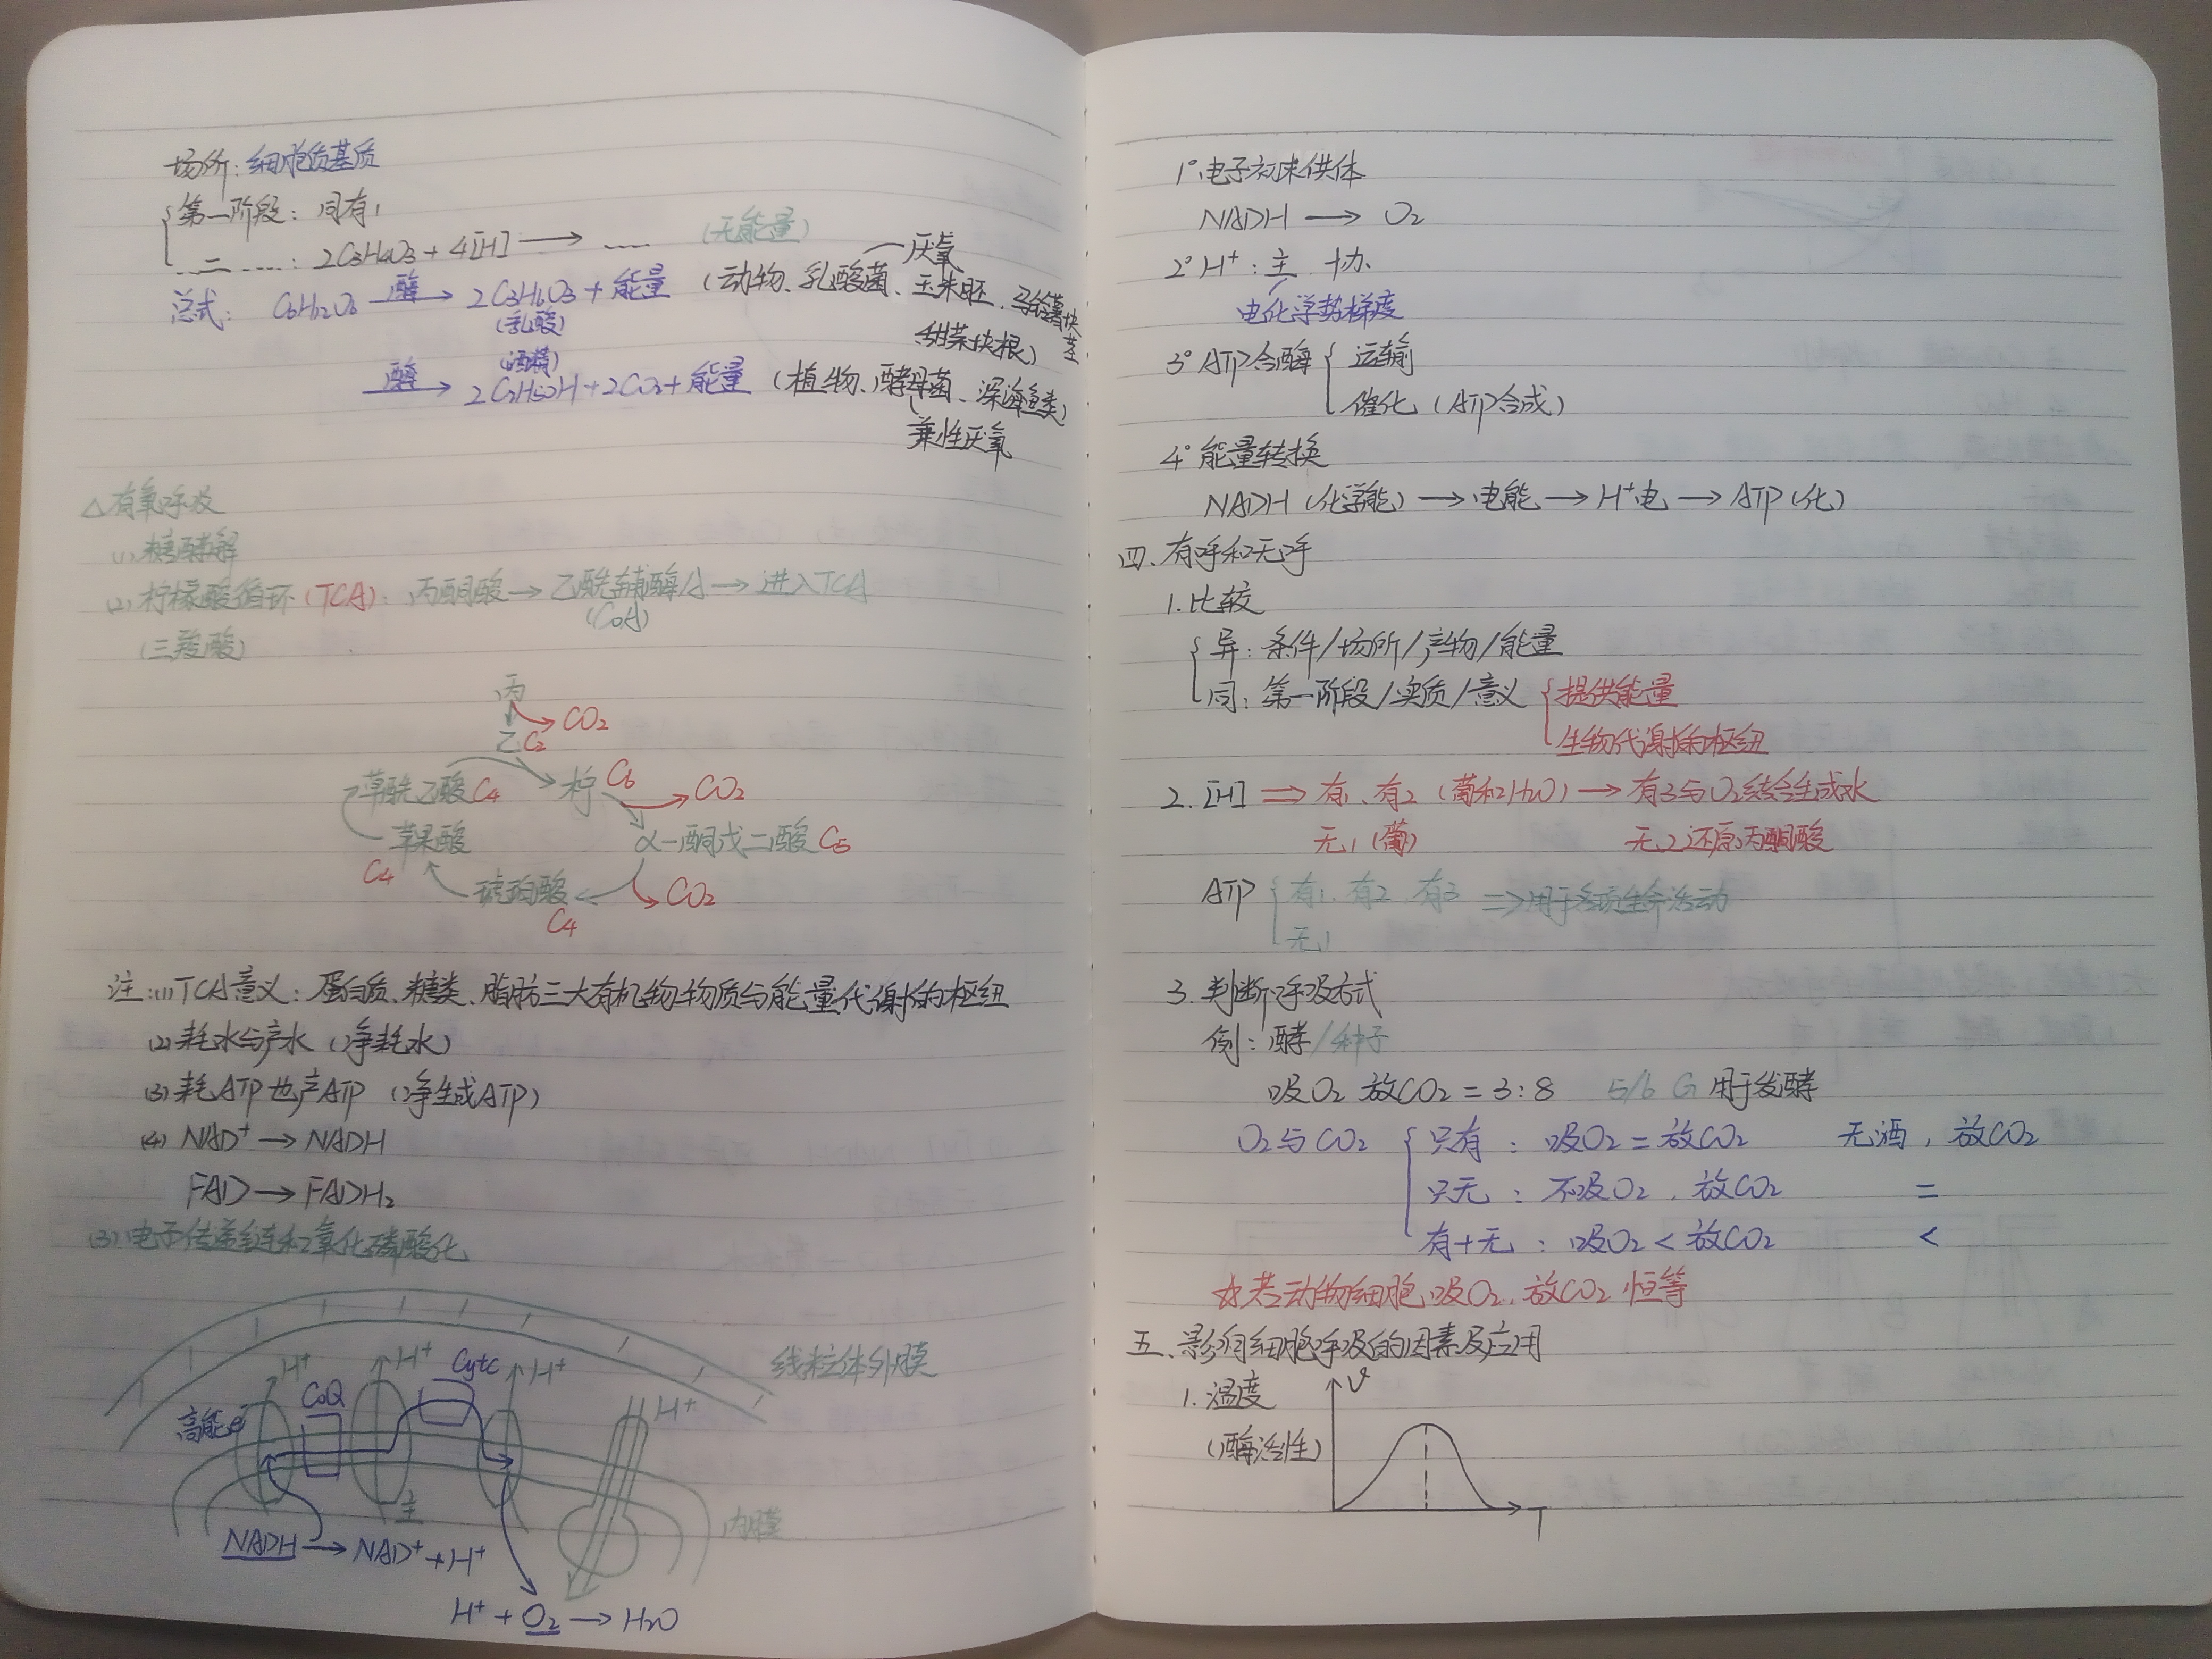 场所：细胞质基质
第一阶段：同有1
…二……：2C3H4O3 + 4[H] ⟶ …… （无能量）
厌氧
总式：C6H12O6 酶⟶ 2C3H6O3 + 能量（动物、乳酸菌、玉米胚、马铃薯块茎
（乳酸） 甜菜块根）
（酒精）
酶⟶ 2C2H5OH + 2CO2 + 能量（植物、酵母菌、深海鱼类）
兼性厌氧
△有氧呼吸
(1) 糖酵解
(2) 柠檬酸循环（TCA）：丙酮酸→乙酰辅酶A→进入TCA
（三羧酸） （CoA）
丙
CO2
乙 C2
草酰乙酸 C4 柠 C6 CO2
苹果酸 α-酮戊二酸 C5
C4
琥珀酸 CO2
C4
注：(1)TCA意义：蛋白质、糖类、脂肪三大有机物物质与能量代谢的枢纽
(2) 耗水与产水（净耗水）
(3) 耗ATP也产ATP（净生成ATP）
(4) NAD⁺→NADH
FAD→FADH2
(3) 电子传递链和氧化磷酸化
线粒体外膜
H⁺ H⁺ Cytc H⁺
CoQ H⁺
高能e⁻
主
内膜
NADH→NAD⁺+H⁺
H⁺ + O2 → H2O
1° 电子初末供体
NADH ⟶ O2
2° H⁺：主 协
电化学势梯度
3° ATP合酶 运输
催化（ATP合成）
4° 能量转换
NADH（化学能）→电能→H⁺电→ATP（化）
四、有呼和无呼
1. 比较
异：条件/场所/产物/能量
同：第一阶段/实质/意义 提供能量
生物代谢的枢纽
2. [H] ⇒ 有1、有2（葡和H2O）→有3与O2结合生成水
无1（葡） 无2还原丙酮酸
ATP 有1 有2 有3 ⇒用于各项生命活动
无1
3. 判断呼吸方式
例：酵/种子
吸O2 放CO2 = 3:8 5/6 G 用于发酵
O2与CO2 只有：吸O2 = 放CO2 无酒，放CO2
只无：不吸O2，放CO2 =
有+无：吸O2 < 放CO2 <
☆若动物细胞，吸O2，放CO2 恒等
五、影响细胞呼吸的因素及应用
1. 温度 v
（酶活性）
T